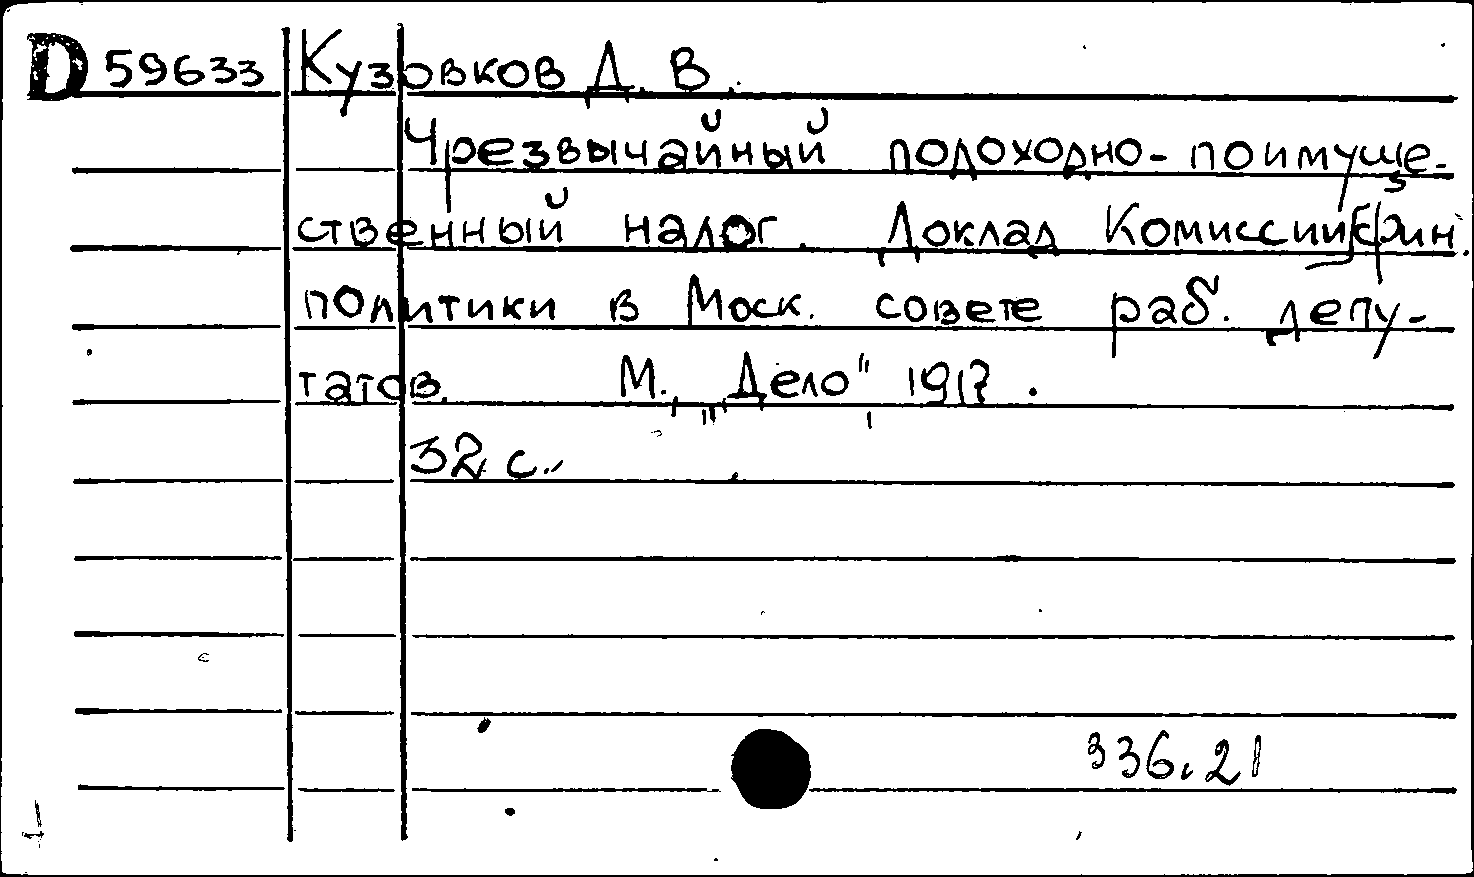 D 59633 Кузовков Д. В.
Чрезвычайный подоходно-поимуще-
ственный налог. Доклад Комиссии фин.
политики в Моск. совете раб. депу-
татов. М., „Дело", 1917.
32 с.
336.21
1